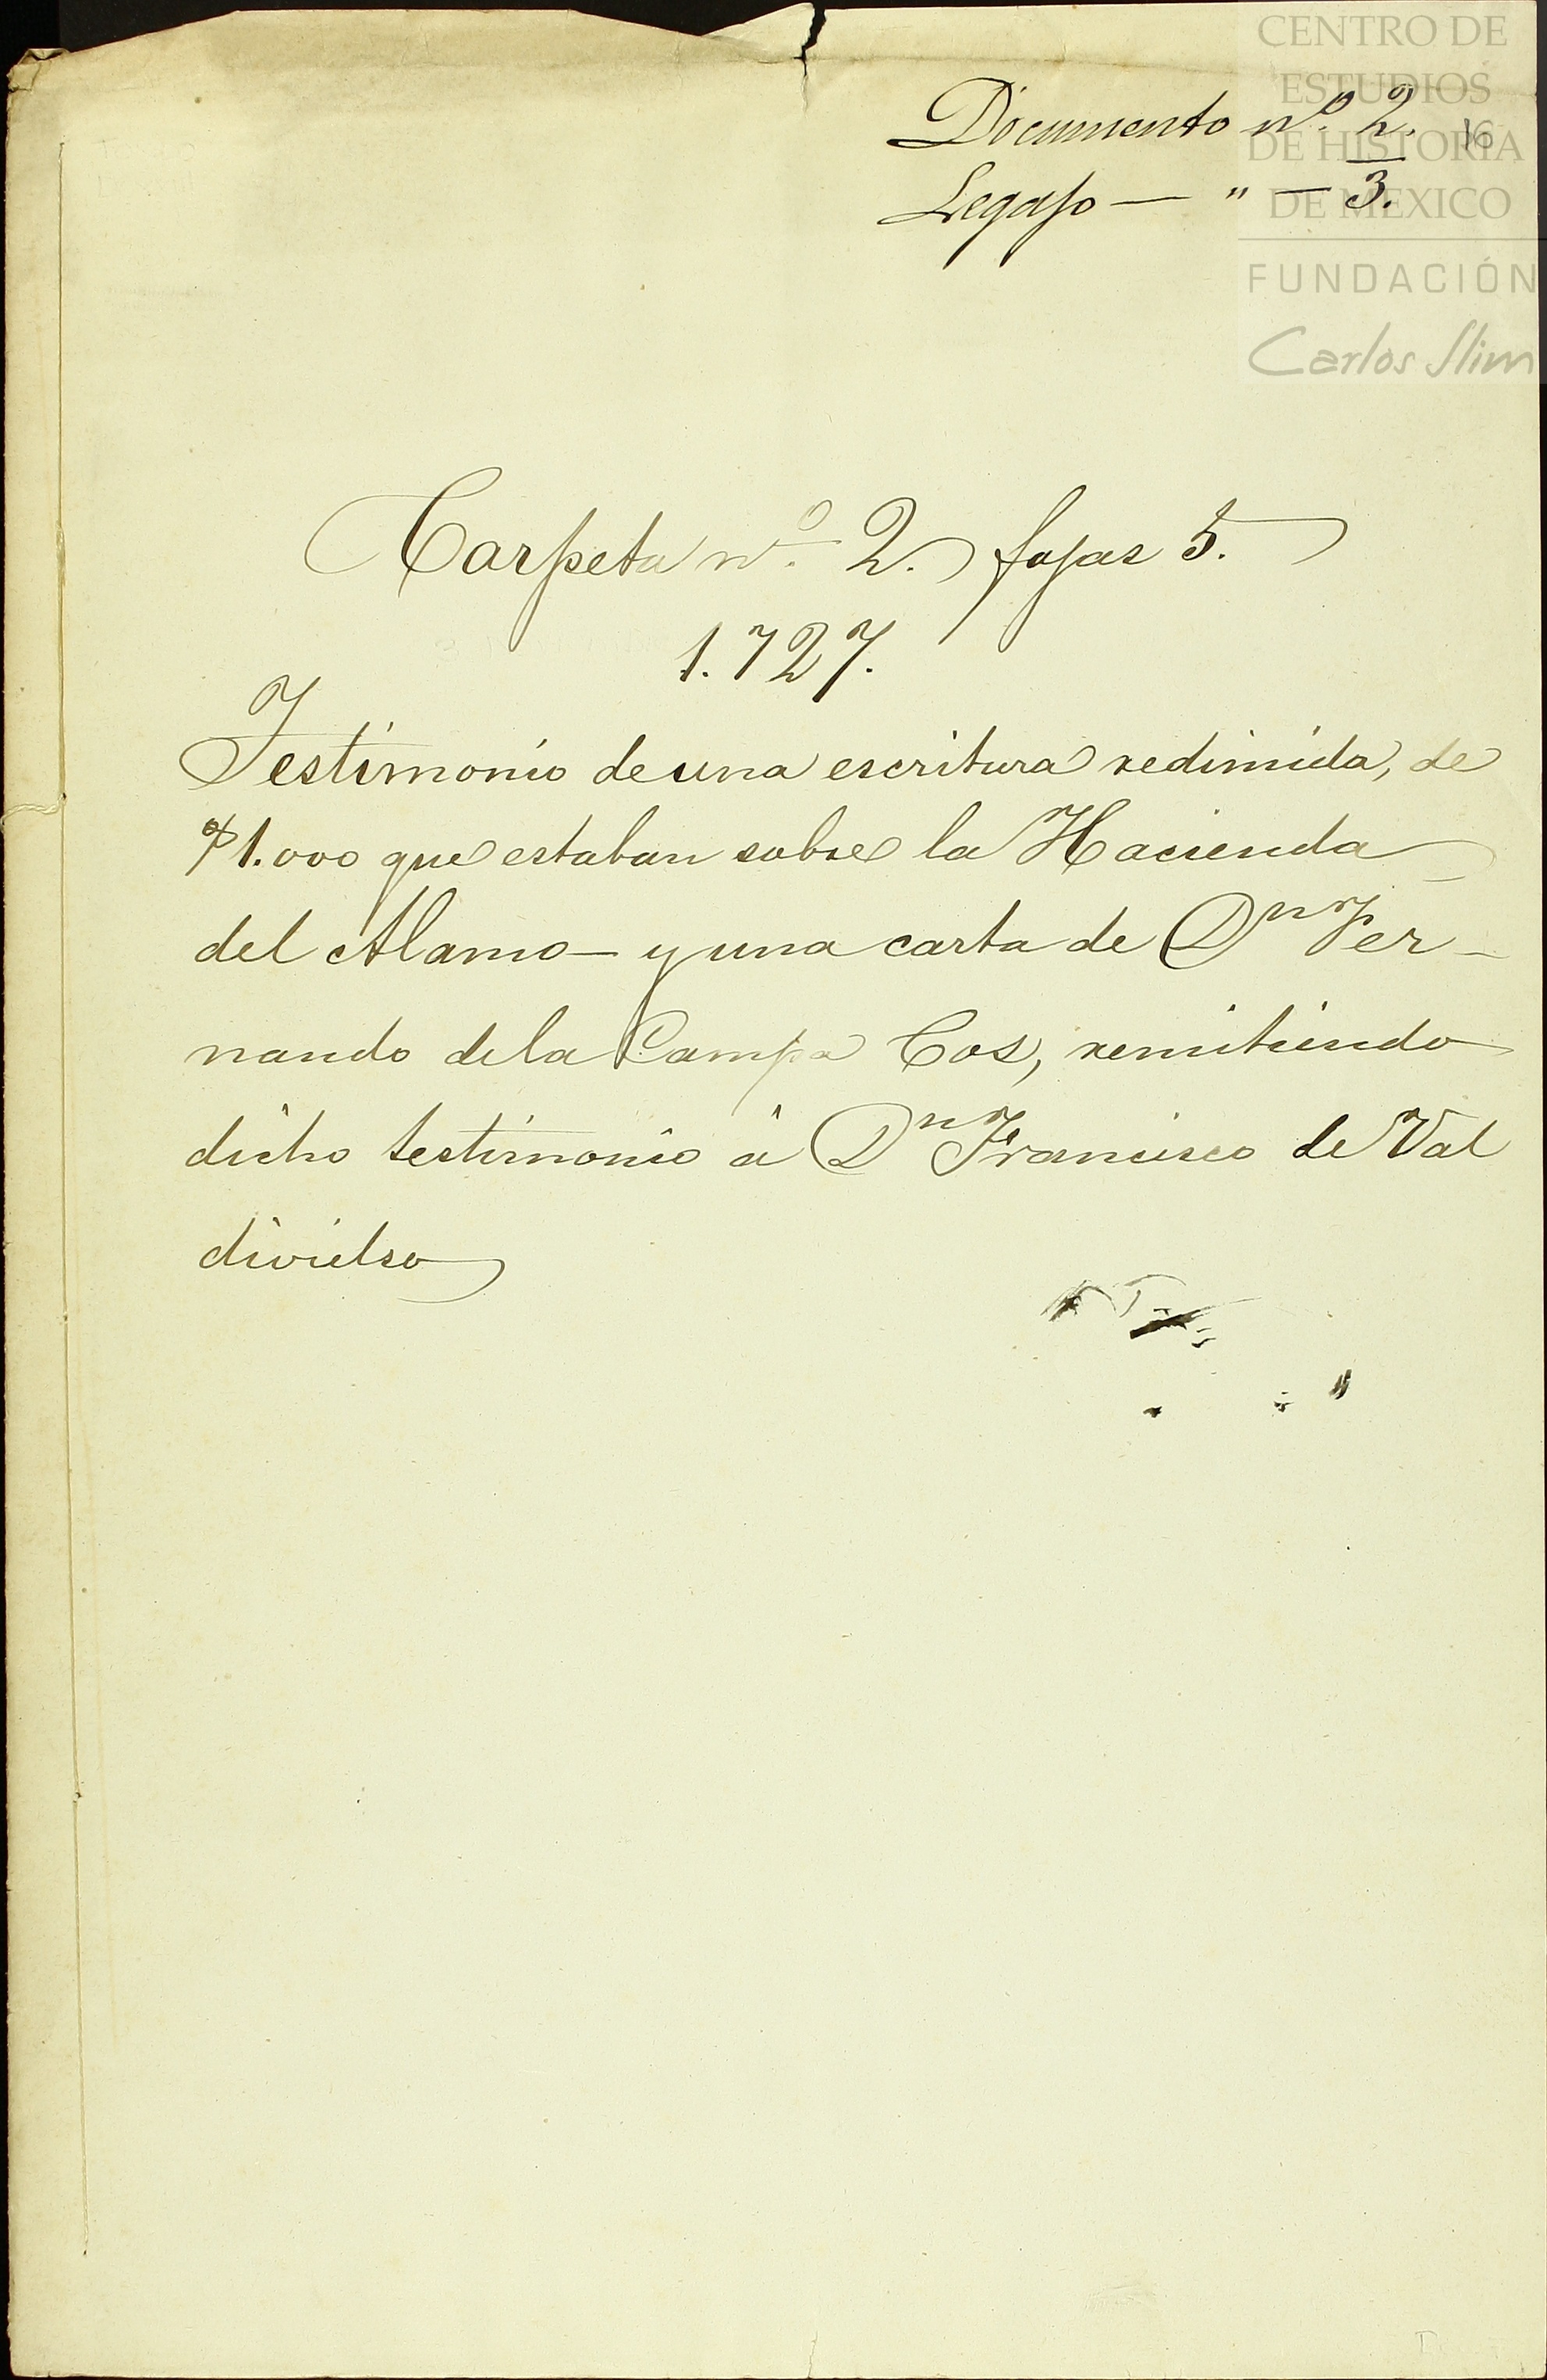 CENTRO DE
ESTUDIOS
DE HISTORIA
DE MEXICO
FUNDACIÓN
Carlos Slim
Documento nº. 2. 16
Legajo — " — 3.
Carpeta nº. 2. fojas 5.
1.727.
Testimonio de una escritura redimida, de
$1.000 que estaban sobre la Hacienda
del Alamo— y una carta de Dn Fer-
nando de la Campa Cos, remitiendo
dicho testimonio á Dn Francisco de Val
divielso